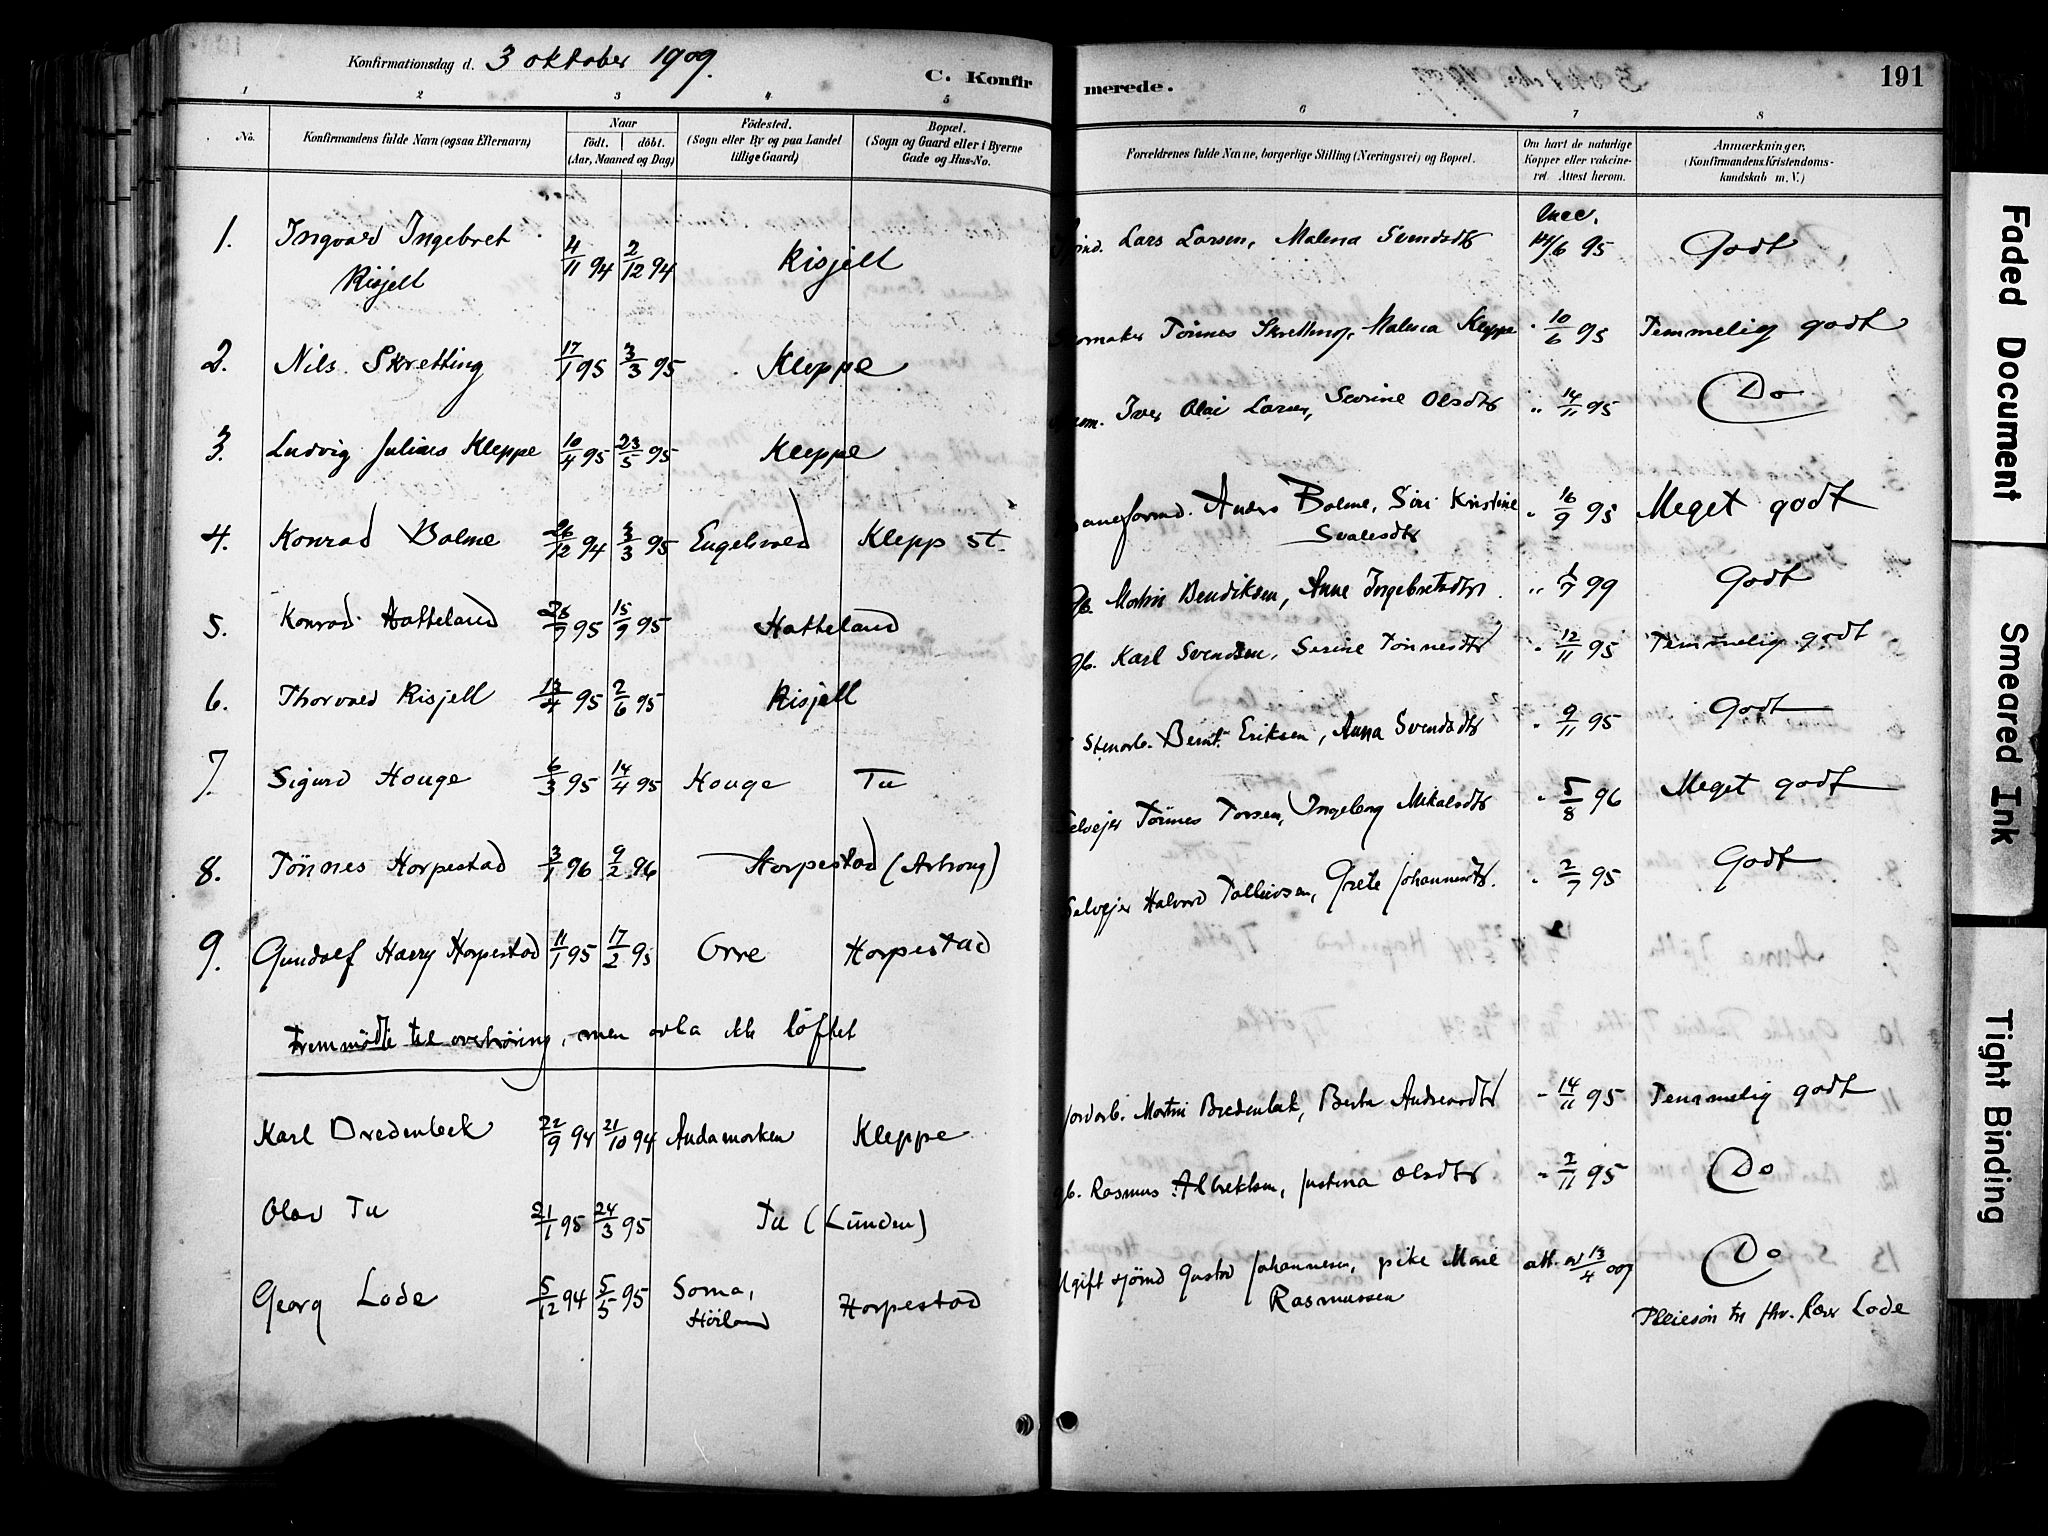 Konfirmationsdag d. 3 oktober 1909.
C. Konfirmerede.
191
1 2 3 4 5 6 7 8
No.
Konfirmandens fulde Navn (ogsaa Efternavn)
Naar
födt. döbt.
(Aar, Maaned og Dag)
Födested.
(Sogn eller By og paa Landet
tillige Gaard)
Bopæl.
(Sogn og Gaard eller i Byerne
Gade og Hus-No.
Forældrenes fulde Navne, borgerlige Stilling (Næringsvei) og Bopæl.
Om havt de naturlige
Kopper eller vakcine-
ret. Attest herom.
Anmærkninger.
(Konfirmandens Kristendoms-
kundskab m. V.)
1. Ingvard Ingebret Risjell 4/11 94 2/12 94 Risjell Lars Larsen, Malena Svendsdtr vacc. 14/6 95 Godt
2. Nils Skretting 17/1 95 3/3 95 Kleppe Tönnes Skretting, Malena Kleppe " 10/6 95 Temmelig godt
3. Ludvig Julius Kleppe 10/4 95 23/5 95 Kleppe Iver Olai Larsen, Severine Olsdtr " 14/11 95 Do
4. Konrad Bolme 26/12 94 3/3 95 Engelsvold Klepp st. Baneformd. Anders Bolme, Siri Kristine Svalesdtr " 16/9 95 Meget godt
5. Konrad Hatteland 95 15/9 95 Hatteland Gb. Martin Bendiksen, Anne Ingebretsdtr " 99 Godt
6. Thorvald Risjell 13/4 95 2/6 95 Risjell Gb. Karl Svendsen, Serine Tönnesdtr " 12/11 95 Temmelig godt
7. Sigurd Houge 6/3 95 14/4 95 Houge Tu Stenarb. Bernt Eriksen, Anna Svendsdtr " 9/11 95 Godt
8. Tönnes Horpestad 3/1 96 9/2 96 Horpestad (Arhong) Selvejer Tönnes Torsen, Ingeborg Mikalsdtr " 5/8 96 Meget godt
9. Gundolf Harry Horpestad 11/1 95 17/2 95 Orre Horpestad Selvejer Halvord Tallievsen, Grete Johannesdtr. " 2/7 95 Godt
Fremmödte til overhöring, men avla ikke löftet
Karl Bredenbek 22/9 94 21/10 94 Andamorken Kleppe Jordarb. Martin Bredenbek, Berta Andreasdtr " 14/11 95 Temmelig godt
Olav Tu 21/1 95 24/3 95 Tu (Lunden) Gb. Rasmus Albrektsen, Justina Olsdtr " 2/11 95 Do
Georg Lode 5/12 94 5/5 95 Soma, Höiland Horpestad Ugift sjömd Gustav Johannesen, pike Marie Rasmussen att. av 13/4 009 Do
Pleiesön til fhv. lærer Lode
Faded Document
Smeared Ink
Tight Binding